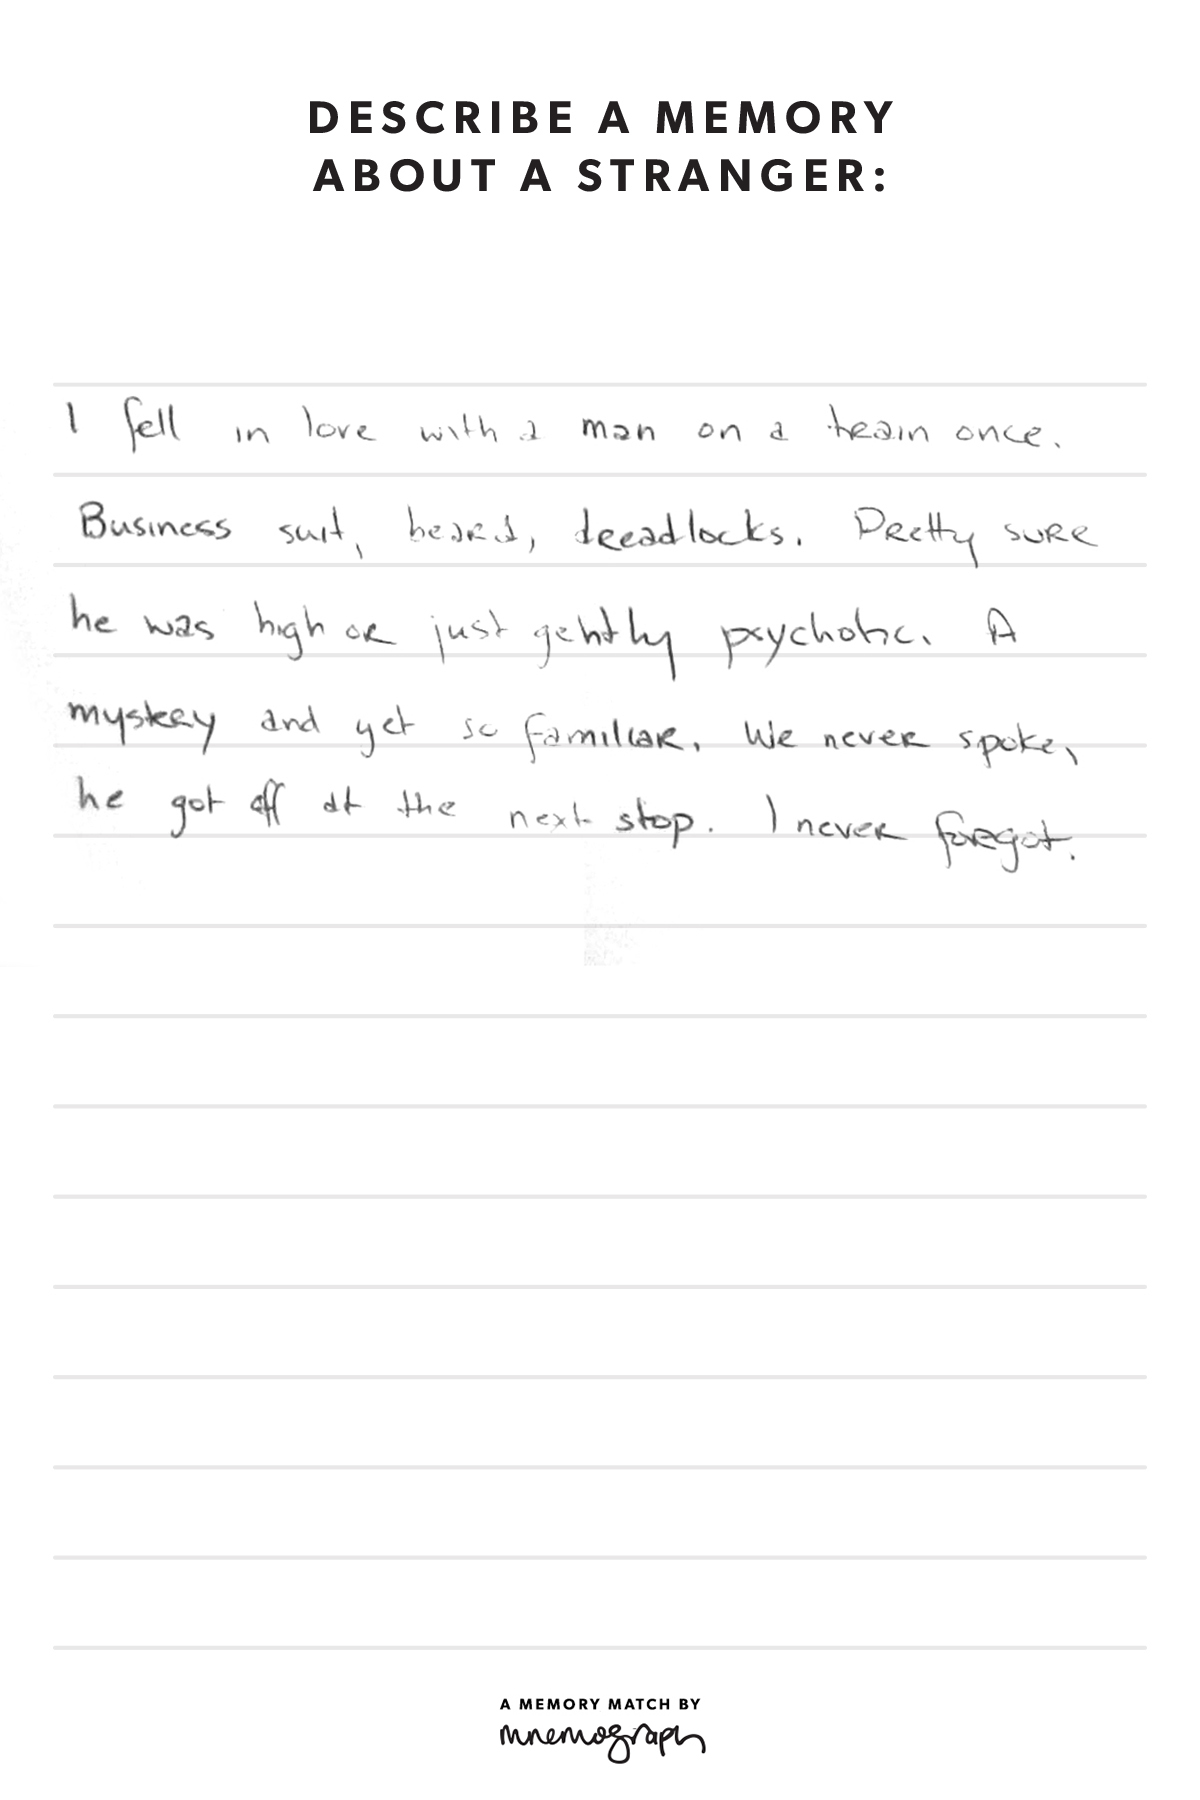 DESCRIBE A MEMORY
ABOUT A STRANGER:
I fell in love with a man on a train once.
Business suit, beard, dreadlocks. Pretty sure
he was high or just gently psychotic. A
mystery and yet so familiar. We never spoke,
he got off at the next stop. I never forgot.
A MEMORY MATCH BY
mnemograph